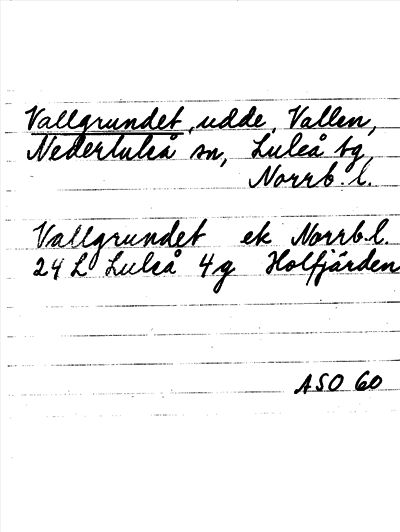 Vallgrundet, udde, Vallen,
Nederluleå sn, Luleå tg,
Norrb. l.
Vallgrundet ek Norrb.l.
24 L Luleå 4g Holfjärden
ASO 60